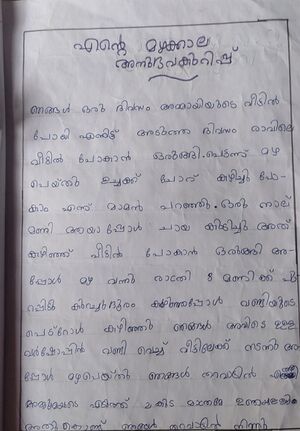 എന്റെ മഴക്കാല
അനുഭവകുറിപ്പ്
ഞങ്ങൾ ഒരു ദിവസം അമ്മായിയുടെ വീട്ടിൽ
പോയി എന്നിട്ട് അടുത്ത ദിവസം രാവിലെ
വീട്ടിൽ പോകാൻ ഒരുങ്ങി. പെട്ടന്ന് മഴ
പെയ്തു ഉച്ചക്ക് ചോറ് കഴിച്ചു പോ-
കാം എന്ന് മാമൻ പറഞ്ഞു. ഒരു നാല്
മണി ആയപ്പോൾ ചായ കുടിച്ചു അത്
കഴിഞ്ഞ് വീട്ടിൽ പോകാൻ ഒരുങ്ങി അ-
പ്പോൾ മഴ വന്നു രാത്രി 8 മണിക്ക് പു-
റപ്പെട്ടു കുറച്ചുദൂരം കഴിഞ്ഞപ്പോൾ വണ്ടിയുടെ
പെട്രോൾ കഴിഞ്ഞു ഞങ്ങൾ അവിടെ ഉള്ള
വർഷോപ്പിൽ വണ്ടി വെച്ച് വീട്ടിലേക്ക് നടന്നു അ-
പ്പോൾ മഴപെയ്തു ഞങ്ങൾ
2 കുട മാത്രമേ
അതുകൊണ്ട് ഞങ്ങൾ നിന്നു